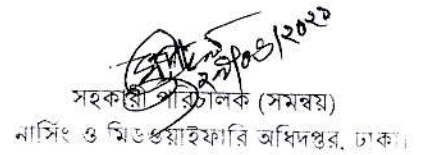 ২৯/০৩/২০২১
সহকারী পরিচালক (সমন্বয়)
নার্সিং ও মিডওয়াইফারি অধিদপ্তর, ঢাকা।